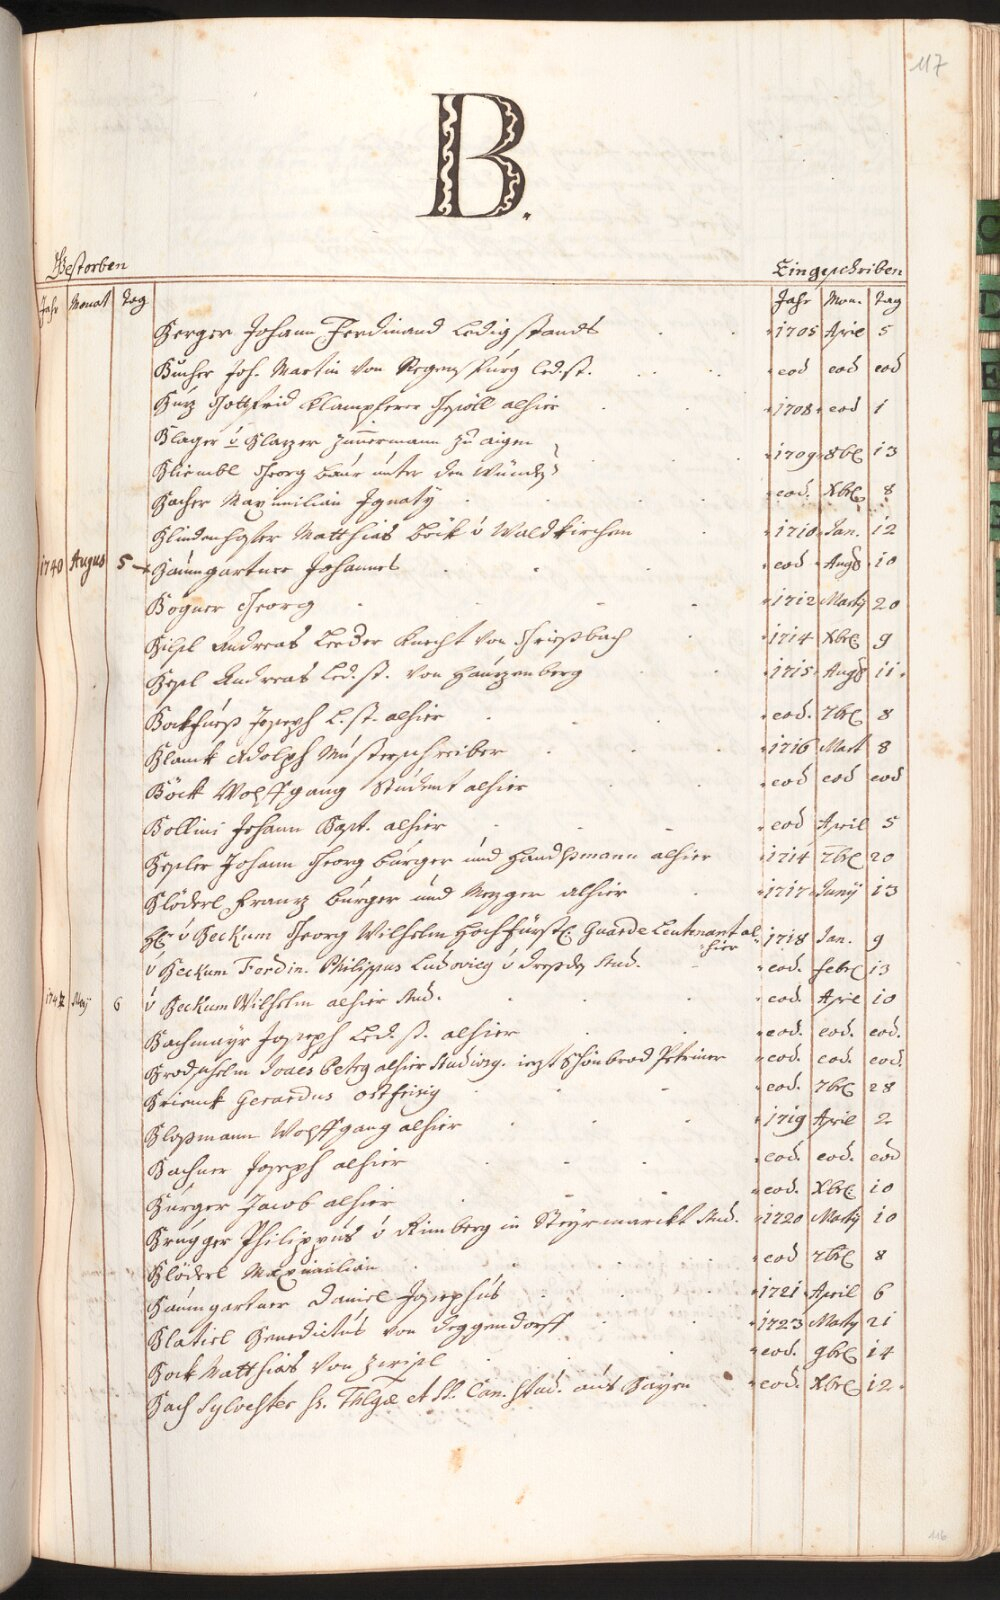 117
B.
Gestorben Eingeschriben
Jahr Monat Tag Jahr Mon. Tag
Berger Johann Ferdinand ledig stands 1705 April 5
Bucher Joh. Martin von Regenspurg led. st. eod eod eod
Burz Gottfrid Klampferer Gsöll alhier 1708 eod 1
Blager v Zimmermann zu aigen
Georg baur unter den 1709 8br 13
Bacher Maximilian Ignatÿ eod. Xbr 8
Matthias Böck v Waldkirchen 1710 Jan. 12
1740 Augus 5 Baumgartner Johannes eod Aug 10
Bogner Georg 1712 Martÿ 20
Andreas Leeder Knecht von Griesbach 1714 Xbr 9
Andreas Led. st. von Hauzenberg 1715 Aug 11.
Joseph L. st. alhier eod. 7br 8
Blanck Adolph Musterschreiber 1716 Mart 8
Böck Wolffgang Student alhier eod eod eod
Bollini Johann Bapt. alhier eod April 5
Johann Georg burger und Handlsmann alhier 1714 7br 20
Blöderl Franz burger und Mezger alhier 1717 Junÿ 13
v Beckum Georg Wilhelm Hochfürstl Guarde Leutenant al- 1718 Jan. 9
hier
v Beckum Ferdin. Philippus Ludovicg Stud. eod. febr 13
1742 Maÿ 6 v Beckum Wilhelm alhier Stud. eod. April 10
Bachmayr Joseph Led. st. alhier eod. eod. eod.
Joaes alhier iezt Schönbrod eod. eod. eod.
Brienck Gerardus ostfrisig eod. 7br 28
Bloßmann Wolffgang alhier 1719 April 2
Bachner Joseph alhier eod. eod. eod
Burger Jacob alhier eod. Xbr. 10
Brugger Philippus v in Steyrmarckt Stud. 1720 Martÿ 10
Blöderl Maximilian eod 7br 8
Baumgartner Daniel Josephus 1721 April 6
Blatiel Benedictus von Deggendorff 1723 Martÿ 21
Bock Matthias von eod. 9br 14
Bach Sylvester Ss. Thlgiæ et SS. Can. stud. aus Bayrn eod. Xbr 12.
116